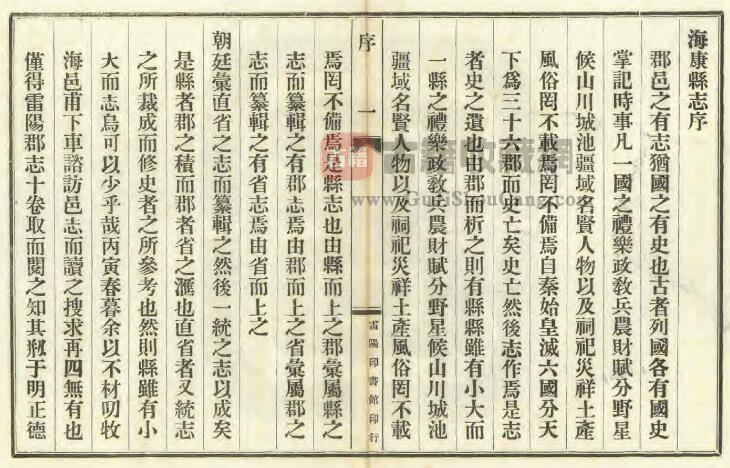 海康縣志序
郡邑之有志猶國之有史也古者列國各有國史
掌記時事凡一國之禮樂政敎兵農財賦分野星
候山川城池疆域名賢人物以及祠祀災祥土產
風俗罔不載焉罔不備焉自秦始皇滅六國分天
下爲三十六郡而史亡矣史亡然後志作焉是志
者史之遺也由郡而析之則有縣縣雖有小大而
一縣之禮樂政敎兵農財賦分野星候山川城池
疆域名賢人物以及祠祀災祥土產風俗罔不載
序
一
雷陽印書館印行
焉罔不備焉是縣志也由縣而上之郡彙屬縣之
志而纂輯之有郡志焉由郡而上之省彙屬郡之
志而纂輯之有省志焉由省而上之
朝廷彙直省之志而纂輯之然後一統之志以成矣
是縣者郡之積而郡者省之滙也直省者又統志
之所裁成而修史者之所參考也然則縣雖有小
大而志烏可以少乎哉丙寅春暮余以不材叨牧
海邑甫下車諮訪邑志而讀之搜求再四無有也
僅得雷陽郡志十卷取而閱之知其剏于明正德
古籍收藏網
www.GujiShouCang.com